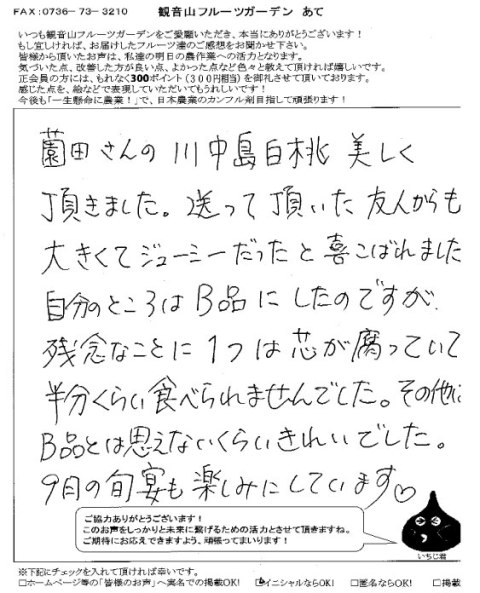 FAX:0736-73-3210 観音山フルーツガーデン あて
いつも観音山フルーツガーデンをご愛願いただき、本当にありがとうございます！
もし宜しければ、お届けしたフルーツ達のご感想をお聞かせ下さい。
皆様から頂いたお声は、私達の明日の農作業への活力となります。
気づいた点、改善した方が良い点、よかった点など色々と教えて頂ければ嬉しいです。
正会員の方には、もれなく300ポイント(300円相当)を御礼させて頂いております。
感じた点を、絵などで表現していただいてもうれしいです！
今後も「一生懸命に農業！」で、日本農業のカンフル剤目指して頑張ります！
薗田さんの 川中島白桃 美しく
頂きました。送って頂いた 友人からも
大きくてジューシーだったと喜こばれました
自分のところはB品にしたのですが、
残念なことに1つは芯が腐っていて
半分くらい食べられませんでした。その他は
B品とは思えないくらいきれいでした。
9月の旬宴も楽しみにしています♡
ご協力ありがとうございます！
このお声をしっかりと未来に繋げるための活力とさせて頂きますね。
ご期待にお応えできますよう、頑張ってまいります！
いちじ君
※下記にチェックを入れて頂ければ幸いです。
□ホームページ等の「皆様のお声」へ実名での掲載OK! ☑イニシャルならOK! □匿名ならOK! □掲載